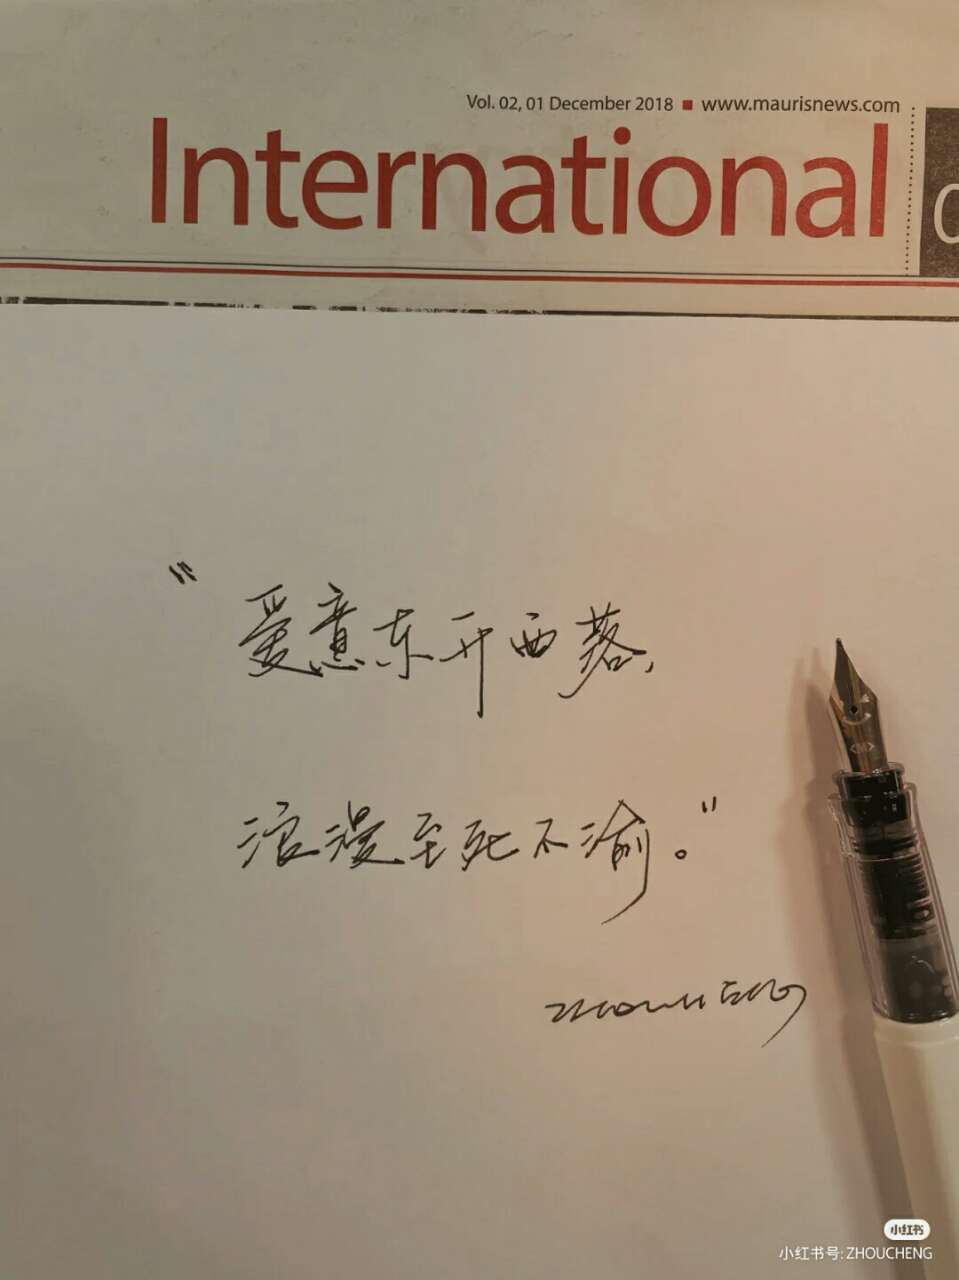 Vol. 02, 01 December 2018 ■ www.maurisnews.com
International
“爱意东升西落，
浪漫至死不渝。”
小红书
小红书号: ZHOUCHENG